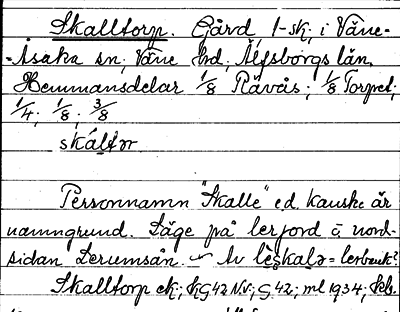 Skalltorp. Gård 1-sk, i Väne-
-Åsaka sn, Väne hrd, Älfsborgs län.
Hemmansdelar 1/8 Rävås; 1/8 Torpet;
1/4; 1/8; 3/8
skáltər
Personnamn "Skalle" e.d. kanske är
namngrund. Läge på lerjord å nord-
sidan Lerumsån. Av lèskalə = lerbank?
Skalltorp ek; NV; G 42; ml 1934;